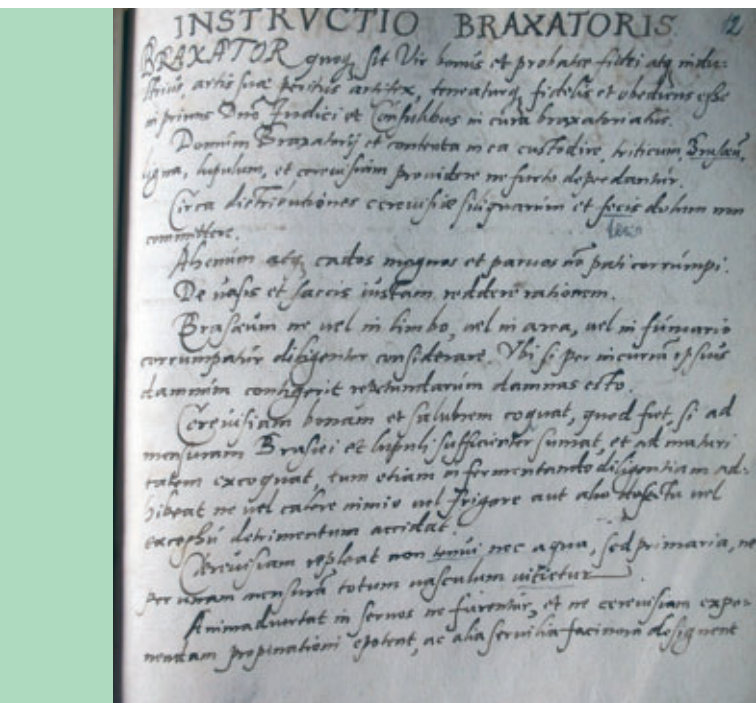 INSTRVCTIO BRAXATORIS. 12
BRAXATOR quoq̃ sit Vir bonus et probatæ fidei atq̃ indu:
strius, artis suæ peritus artifex, teneaturq̃ fidelis et obediens esse
inprimis Dnõ Iudici et Consulibus in cura braxatoriatus.
Domum Braxatorij et contenta in ea custodire, triticum, Brasæum,
ligna, lupulum, et cereuisiam prouidere ne furto depredantur.
Circa distributiones cereuisiæ siliquarum et fecis dolum non
committere.
Ahenum atq̃ cados magnos et paruos nõ pati corrumpi.
De uasis et saccis iustam reddere rationem.
Brasæum ne uel in limbo, uel in area, uel in fumario
corrumpatur diligenter considerare. Vbi si per incuriã ipsius
damnum contigerit repetundarum damnas esto.
Cereuisiam bonam et salubrem coquat, quod fiet, si ad
mensuram Brasiei et lupuli sufficienter sumat, et ad maturi
tatem excoquat, tum etiam in fermentando diligentiam ad:
hibeat ne uel calore nimio uel frigore aut alio defectu uel
excessu detrimentum accidat.
Cereuisiam repleat non tenui nec aqua, sed primaria, ne
per unam mensurã totum uasculum uitietur
Animaduertat in seruos ne furentur, et ne cereuisiam expo:
nendam propinationi epotent, ac alia seruilia facinora designent